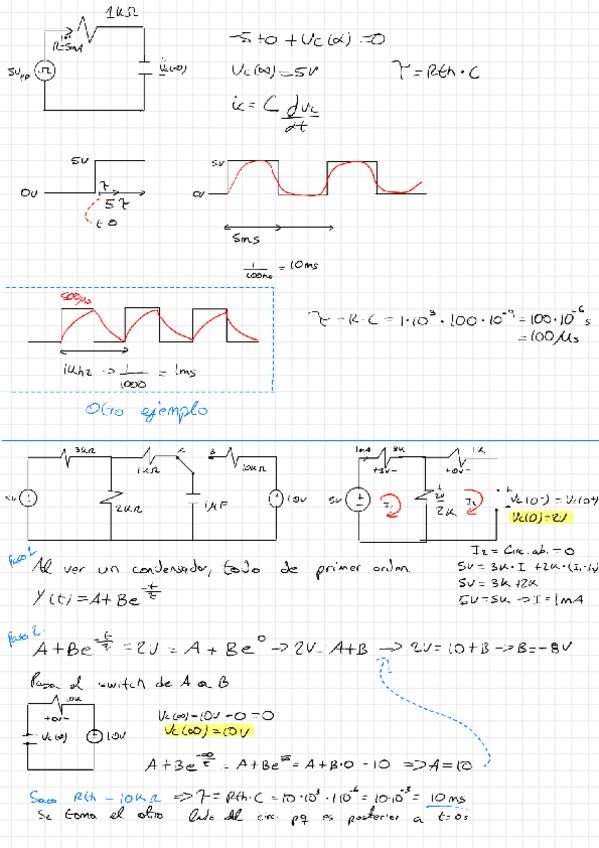 1KΩ
-5+0+Vc(∞)=0
5Vpp
Vc(∞)=5V
τ=Rth·C
ic = C dvc/dt
5V
0V
τ
5τ
t=0
5V
0V
5ms
= 10ms
500μs
τ=R·C = 1·10³·100·10⁻⁹ = 100·10⁻⁶ s
= 100μs
1Khz → 1/1000 = 1ms
Otro ejemplo
3KΩ
1KΩ
10KΩ
2KΩ
1μF
10V
1mA
3K
1K
+3V-
+0V-
5V
I₁
2V
2K
I₂
Vc(0-) = Vc(0+)
Vc(0)=2V
Paso 1
Al ver un condensador, todo de primer orden
y(t)=A+Be^(-t/τ)
I2 = Circ. ab. = 0
5V = 3K·I + 2K·
5V = 3K+2K
5V=5K → I=1mA
Paso 2
A+Be^(-t/τ) = 2V = A + Be⁰ → 2V=A+B → 2V=10+B → B=-8V
Pasa el switch de A a B
+0V-
Vc(∞)
10V
Vc(∞)-10V-0=0
Vc(∞)=10V
A+Be^(-∞/τ) = A+Be^(-∞) = A+B·0=10 ⇒ A=10
Saco Rth=10KΩ ⇒ τ=Rth·C = 10·10³·1·10⁻⁶ = 10·10⁻³ = 10ms
Se toma el otro lado del circ. pq es posterior a t=0s